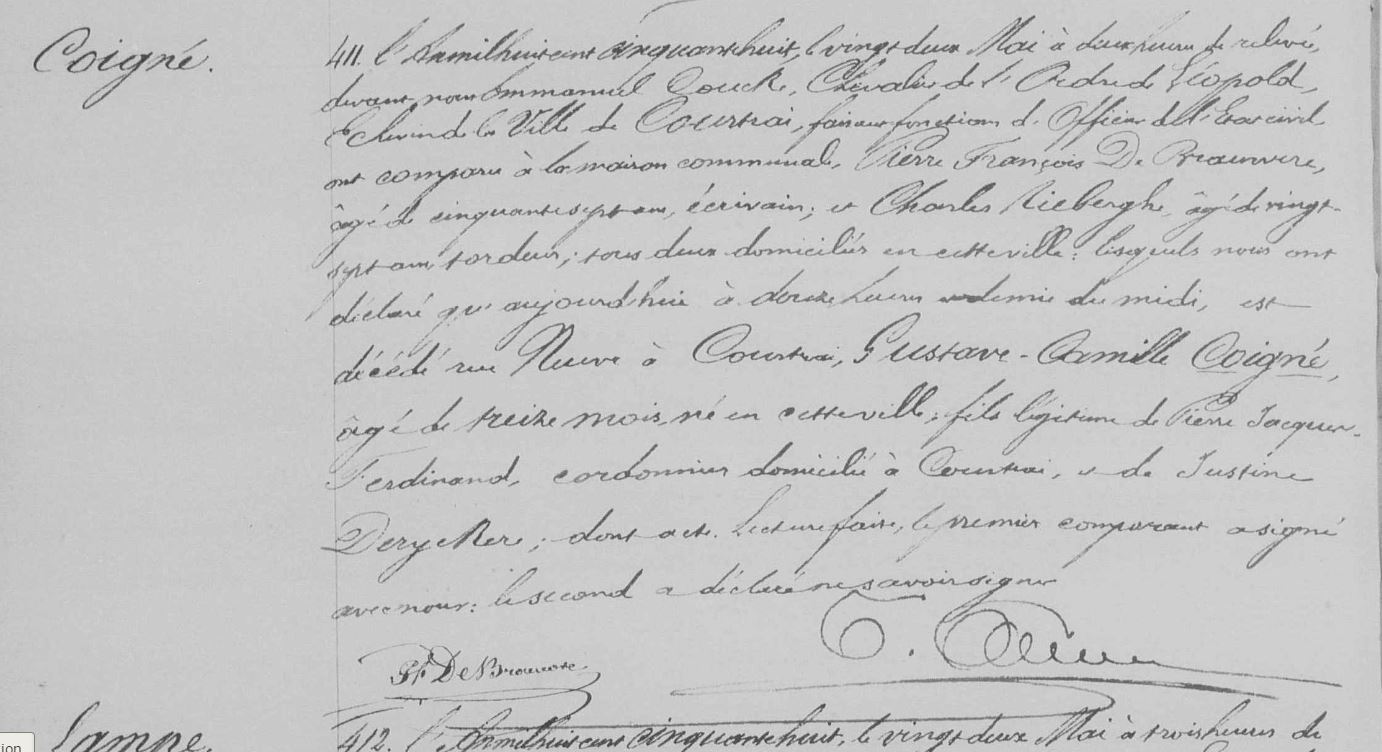 Coigné.
411. l'An mil huit cent cinquante huit, le vingt deux Mai à deux heures de relevée,
devant nous Emmanuel Douck, Chevalier de l'Ordre de Léopold,
Echevin de la Ville de Courtrai, faisant fonctions d'Officier de l'Etat civil
ont comparu à la maison communale, Pierre François De Brauwere,
âgé de cinquante sept ans, écrivain; et Charles Rieberghe, âgé de vingt-
sept ans, tordeur; tous deux domiciliés en cette ville; lesquels nous ont
déclaré qu'aujourd'hui à douze heures et demie du midi, est
décédé rue Neuve à Courtrai, Gustave-Camille Coigné,
âgé de treize mois, né en cette ville; fils légitime de Pierre Jacques-
Ferdinand, cordonnier domicilié à Courtrai, et de Justine
Deryckere; dont acte. Lecture faite, le premier comparant a signé
avec nous; le second a déclaré ne savoir signer
PF De Brauwere
Lampe.
412. l'An mil huit cent cinquante huit, le vingt deux Mai à trois heures de
ion